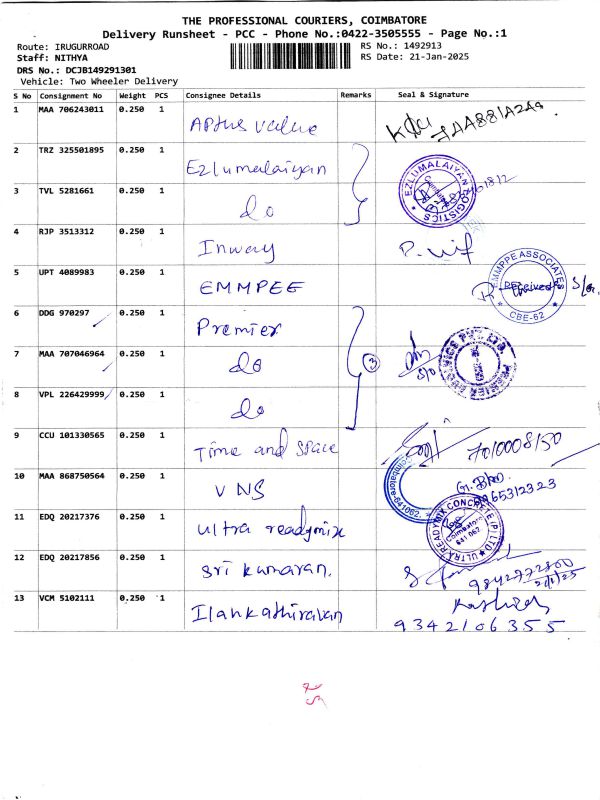 THE PROFESSIONAL COURIERS, COIMBATORE
Delivery Runsheet - PCC - Phone No.:0422-3505555 - Page No.:1
Route: IRUGURROAD
RS No.: 1492913
Staff: NITHYA
RS Date: 21-Jan-2025
DRS No.: DCJB149291301
Vehicle: Two Wheeler Delivery
S No Consignment No Weight PCS Consignee Details Remarks Seal & Signature
1 MAA 706243011 0.250 1 Aptus value
2 TRZ 325501895 0.250 1 Ezlumalaiyan
EZLUMALAIYAN LOGISTICS
3 TVL 5281661 0.250 1 do
4 RJP 3513312 0.250 1 Inway
5 UPT 4089983 0.250 1 EMMPEE
EMMPPE ASSOCIATES
Received
CBE-62
6 DDG 970297 0.250 1 Premier
7 MAA 707046964 0.250 1 do 3
8 VPL 226429999 0.250 1 do
9 CCU 101330565 0.250 1 Time and space 7010008150
Coimbatore-641062.
10 MAA 868750564 0.250 1 VNS
11 EDQ 20217376 0.250 1 ultra readymix
ULTRA READYMIX CONCRETE (P) LTD
Coimbatore
641 062
12 EDQ 20217856 0.250 1 sri kumaran. 9842772800
21/1/25
13 VCM 5102111 0.250 1 Ilankathiravan
9342106355